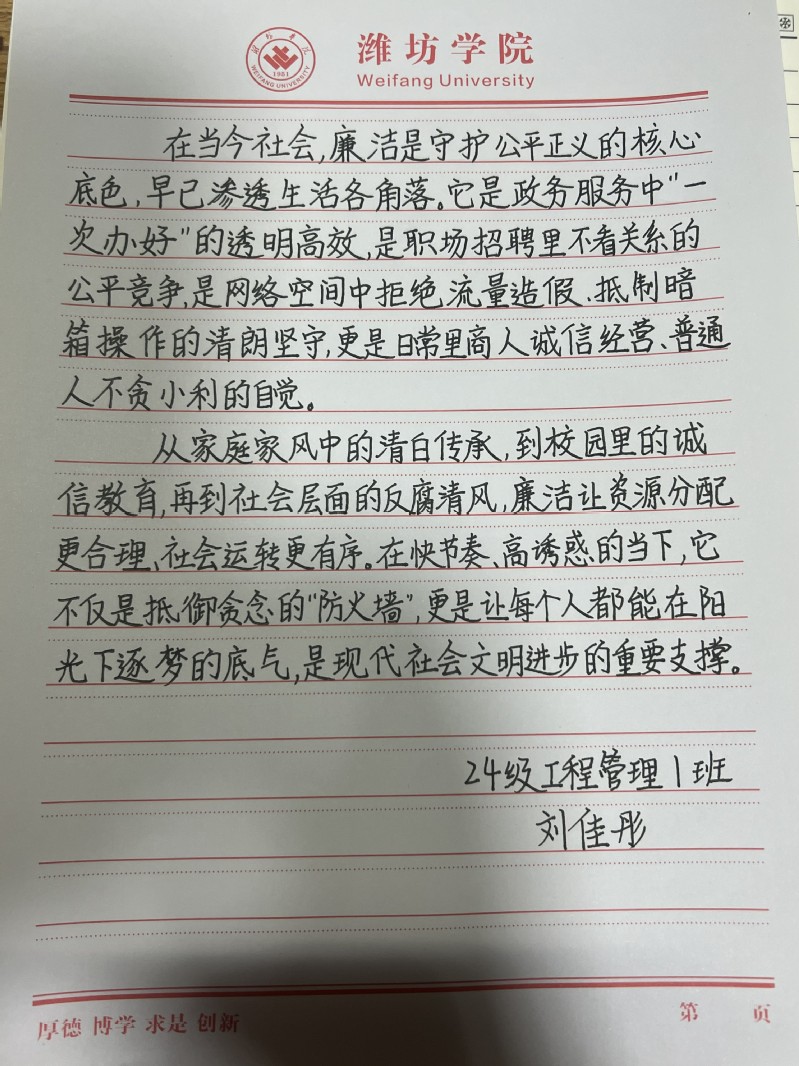 潍坊学院
WEIFANG UNIVERSITY
1951
Weifang University
在当今社会,廉洁是守护公平正义的核心
底色,早已渗透生活各角落。它是政务服务中"一
次办好"的透明高效,是职场招聘里不看关系的
公平竞争,是网络空间中拒绝流量造假、抵制暗
箱操作的清朗坚守,更是日常里商人诚信经营、普通
人不贪小利的自觉。
从家庭家风中的清白传承,到校园里的诚
信教育,再到社会层面的反腐清风,廉洁让资源分配
更合理、社会运转更有序。在快节奏、高诱惑的当下,它
不仅是抵御贪念的"防火墙",更是让每个人都能在阳
光下逐梦的底气,是现代社会文明进步的重要支撑。
24级工程管理1班
刘佳彤
厚德 博学 求是 创新
第 页